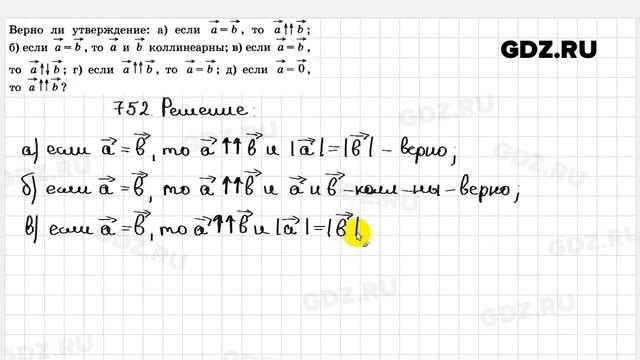 Верно ли утверждение: а) если a⃗ = b⃗, то a⃗↑↑b⃗;
б) если a⃗ = b⃗, то a⃗ и b⃗ коллинеарны; в) если a⃗ = b⃗,
то a⃗↑↓b⃗; г) если a⃗↑↑b⃗, то a⃗ = b⃗; д) если a⃗ = 0⃗,
то a⃗↑↑b⃗?
GDZ.RU
752. Решение:
а) если a⃗ = b⃗, то a⃗↑↑b⃗ и |a⃗| = |b⃗| – верно;
б) если a⃗ = b⃗, то a⃗↑↑b⃗ и a⃗ и b⃗ – колл-ны – верно;
в) если a⃗ = b⃗, то a⃗↑↑b⃗ и |a⃗| = |b⃗|,